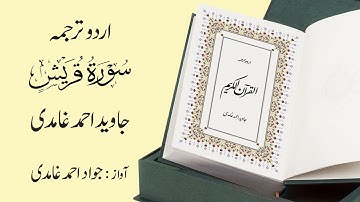 اردو ترجمہ
سورۃ قریش
جاوید احمد غامدی
آواز : جواد احمد غامدی
اردو ترجمہ
القرآن الکریم
جاوید احمد غامدی